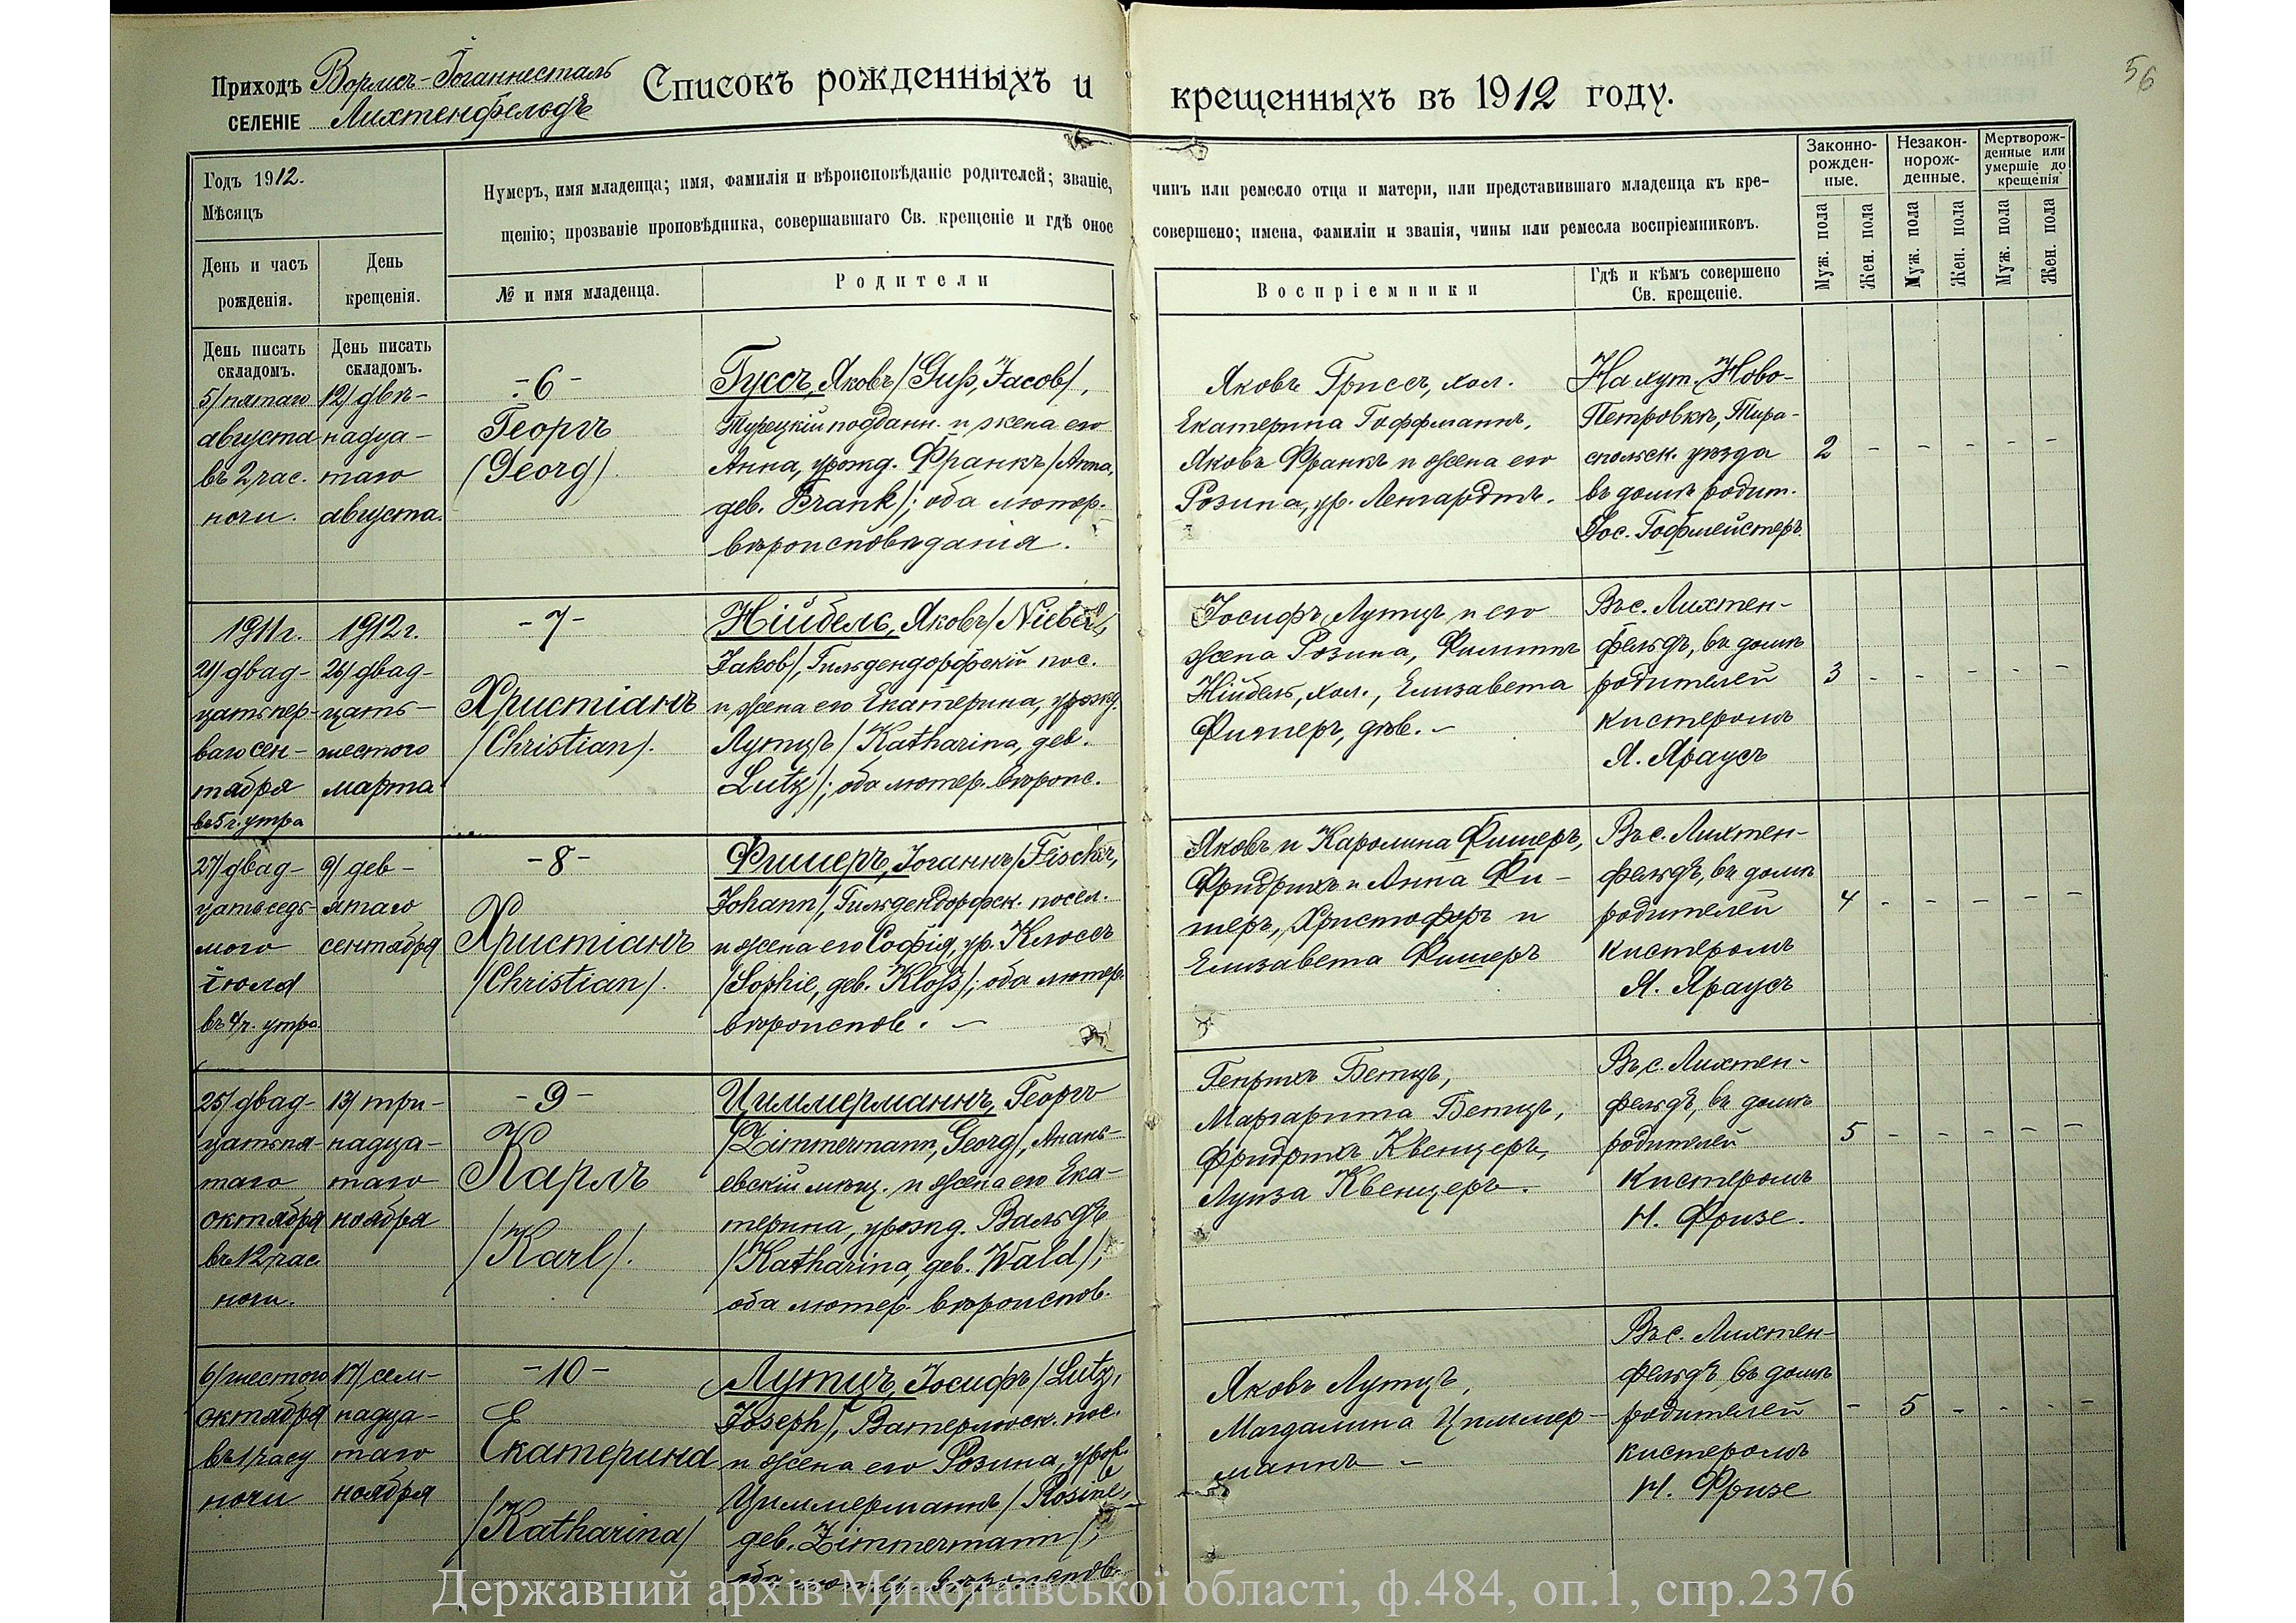 Приходъ Вормсъ-Іоганнесталь
селеніе Лихтенфельдъ
Списокъ рожденныхъ и крещенныхъ въ 1912 году.
56
Годъ 1912.
Мѣсяцъ
День и часъ рожденія.
День крещенія.
Нумеръ, имя младенца; имя, фамилія и вѣроисповѣданіе родителей; званіе, чинъ или ремесло отца и матери, или представившаго младенца къ кре-
щенію; прозваніе проповѣдника, совершавшаго Св. крещеніе и гдѣ оное совершено; имена, фамиліи и званія, чины или ремесла воспріемниковъ.
№ и имя младенца.
Родители
Воспріемники
Гдѣ и кѣмъ совершено
Св. крещеніе.
Законно-
рожден-
ные.
Незакон-
норож-
денные.
Мертворож-
денные или
умершіе до
крещенія
Муж. пола
Жен. пола
Муж. пола
Жен. пола
Муж. пола
Жен. пола
День писать
складомъ.
День писать
складомъ.
5/ пятаго
августа
въ 2 час.
ночи.
12/ двѣ-
надца-
таго
августа.
-6-
Георгъ
(Georg).
Гуссъ, Яковъ/Guß, Jacob/,
Турецкій поддан. и жена его
Анна, урожд. Франкъ/Anna,
geb. Frank/; оба лютер.
вѣроисповѣданія.
Яковъ Гриссъ, хол.
Екатерина Гоффманнъ,
Яковъ Франкъ и жена его
Розина, ур. Ленгардтъ.
На хут. Ново-
Петровкѣ, Тира-
спольск. уѣзда
въ домѣ родит.
Іос. Гофмейстеръ.
2 - - - - -
1911 г.
21/ двад-
цать пер-
ваго сен-
тября
въ 5 ч. утра
1912 г.
26/ двад-
цать-
шестого
марта
-7-
Христіанъ
/Christian/.
Нійбель, Яковъ/Niebel,
Jakob/, Гильдендорфскій пос.
и жена его Екатерина, урожд.
Лутцъ /Katharina, geb.
Lutz/; оба лютер. вѣроис.
Іосифъ Лутцъ и его
жена Розина, Филиппъ
Нійбель, хол., Елизавета
Фишеръ, дѣв. -
Въ с. Лихтен-
фельдъ, въ домѣ
родителей
кистеромъ
Я. Яраусъ
3 - - - - -
27/ двад-
цать седь-
мого
іюля
въ 4 ч. утра
9/ дев-
ятаго
сентября
-8-
Христіанъ
/Christian/.
Фишеръ, Іоганнъ/Fischer,
Johann/, Гильдендорфск. посел.
и жена его Софія, ур. Клоссъ
/Sophie, geb. Kloß/; оба лютер.
вѣроиспов. -
Яковъ и Каролина Фишеръ,
Фридрихъ и Анна Фи-
шеръ, Христофоръ и
Елизавета Фишеръ
Въ с. Лихтен-
фельдъ, въ домѣ
родителей
кистеромъ
Я. Яраусъ
4 - - - - -
25/ двад-
цать пя-
таго
октября
въ 12 час.
ночи.
13/ три-
надца-
таго
ноября
-9-
Карлъ
/Karl/.
Циммерманнъ, Георгъ
/Zimmermann, Georg/, Анань-
евскій мѣщ. и жена его Ека-
терина, урожд. Вальдъ
/Katharina, geb. Wald/;
оба лютер. вѣроиспов.
Генрихъ Бетцъ,
Маргарита Бетцъ,
Фридрихъ Квенцеръ,
Луиза Квенцеръ.
Въ с. Лихтен-
фельдъ, въ домѣ
родителей
Кистеромъ
Н. Фризе.
5 - - - - -
6/ шестого
октября
въ 1 часу
ночи
17/ сем-
надца-
таго
ноября
-10-
Екатерина
/Katharina/
Лутцъ, Іосифъ /Lutz,
Joseph/, Ватерлооск. пос.
и жена его Розина, урож.
Циммерманнъ /Rosine,
geb. Zimmermann/;
оба лютер. вѣроиспов.
Яковъ Лутцъ,
Магдалина Циммер-
маннъ -
Въ с. Лихтен-
фельдъ, въ домѣ
родителей
кистеромъ
Н. Фризе
- 5 - - - -
Державний архів Миколаївської області, ф.484, оп.1, спр.2376